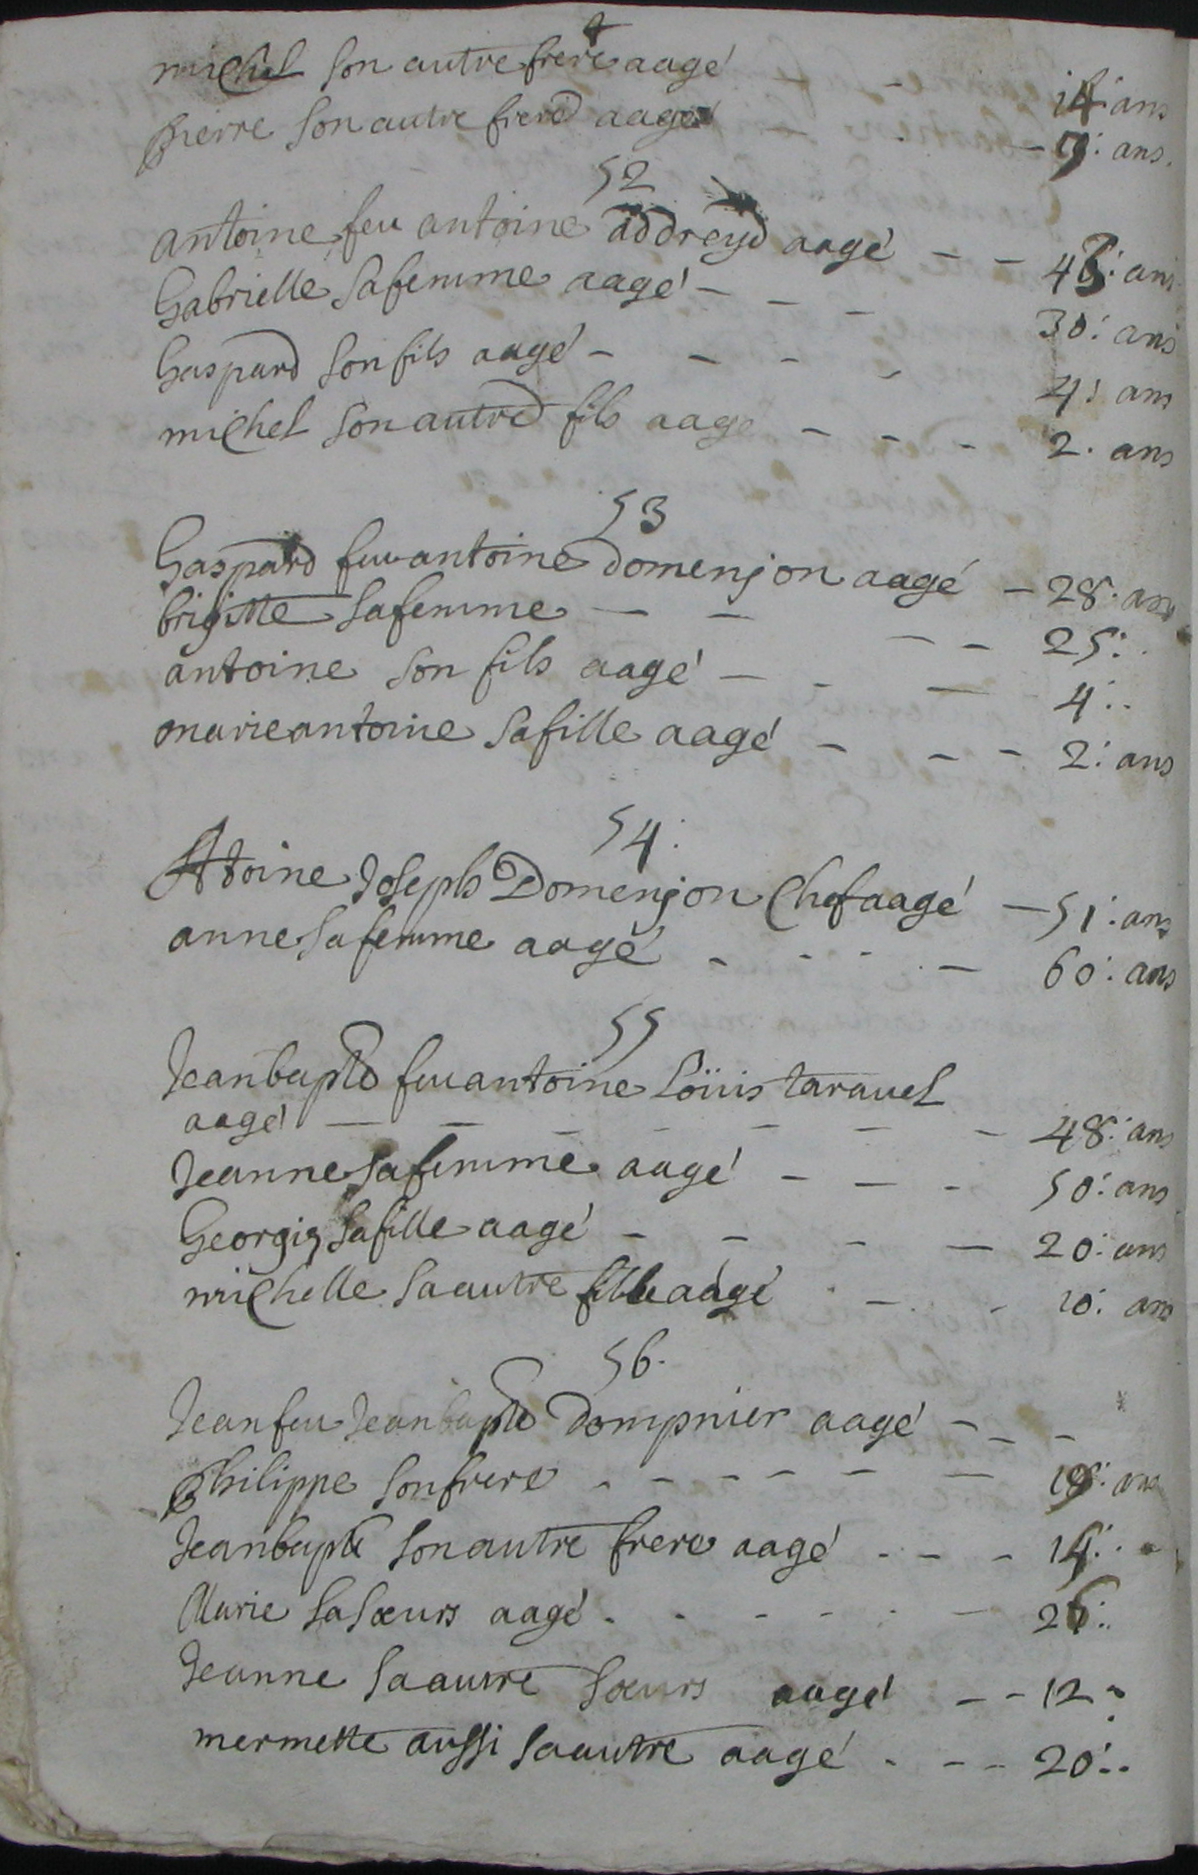 michel son autre frere aagé 14 ans
pierre son autre frere aagé — 9: ans.
52
antoine feu antoine addreyd aagé — — 48: ans
Gabrielle sa femme aagé — — — 30: ans
Gaspard son fils aagé — — — 4: ans
michel son autre fils aagé — — — 2. ans
53
Gaspard feu antoine domenjon aagé — 28. ans
brigitte sa femme — — — — 25:.
antoine son fils aagé — — — 4:.
marie antoine sa fille aagé — — — 2: ans
54:
Atoine Joseph Domenjon Chef aagé — 51: ans
anne sa femme aagé — — — 60: ans
55
Jeanbapte feu antoine Loüis taravel
aagé — — — — — — 48: ans
Jeanne sa femme aagé — — — 50: ans
Georgis sa fille aagé — — — — 20: ans
michelle sa autre fille aagé — — 10: ans
56.
Jean feu Jeanbapte Dompnier aagé — — —
philippe son frere - - - - - — 18: ans
Jeanbapte son autre frere aagé - — - 14:.
Marie sa sœurs aagé - - - - - — 26:.
Jeanne sa autre sœurs aagé — - 12
mermette aussi sa autre aagé - — - 20:.